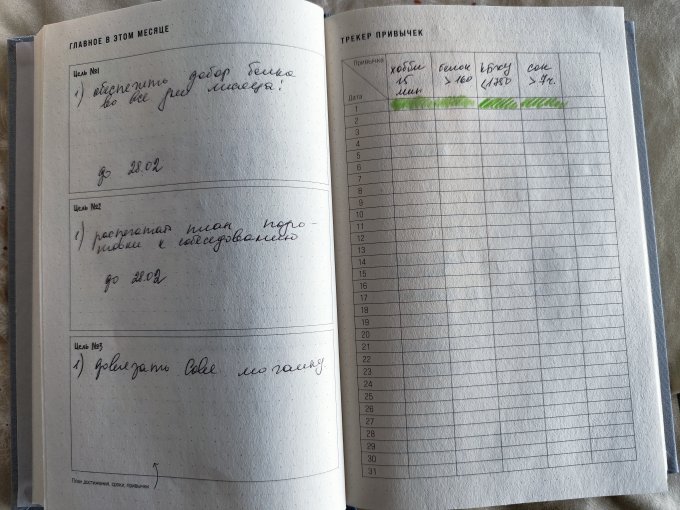 ГЛАВНОЕ В ЭТОМ МЕСЯЦЕ
Цель №1
1) обеспечить добор белка
во все дни месяца!
до 28.02
Цель №2
1) распечатать план подго-
товки к собеседованию
до 28.02
Цель №3
1) довязать Софе
План достижения, сроки, привычки
ТРЕКЕР ПРИВЫЧЕК
Привычка
Дата
хобби
15
мин
белок
>160
кбжу
<1750
сон
>7ч.
1
2
3
4
5
6
7
8
9
10
11
12
13
14
15
16
17
18
19
20
21
22
23
24
25
26
27
28
29
30
31